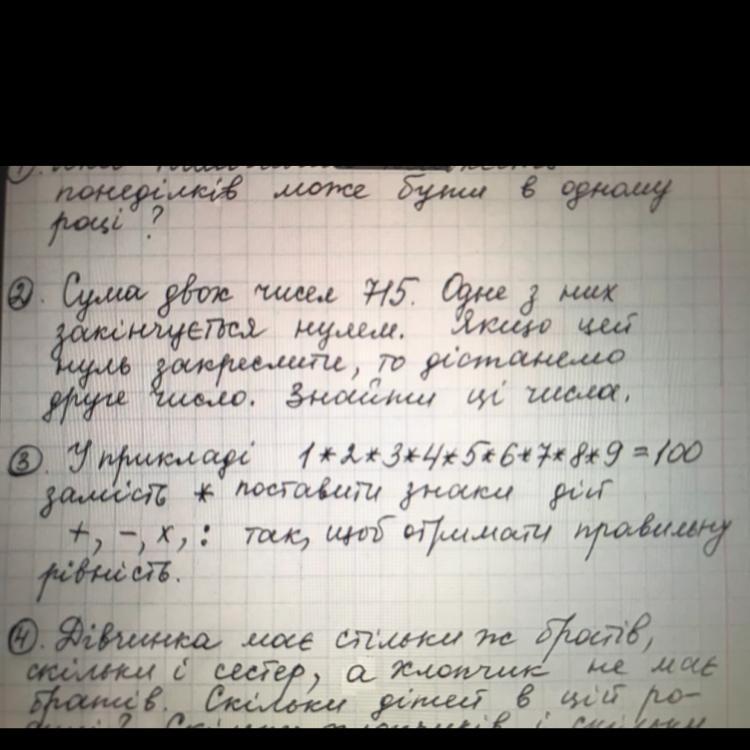 1).
понеділків може бути в одному
році?
2. Сума двох чисел 715. Одне з них
закінчується нулем. Якщо цей
нуль закреслити, то дістанемо
друге число. Знайти ці числа.
3. У прикладі 1*2*3*4*5*6*7*8*9=100
замість * поставити знаки дій
+, -, x, : так, щоб отримати правильну
рівність.
4. Дівчинка має стільки ж братів,
скільки і сестер, а хлопчик не має
братів. Скільки дітей в цій ро-